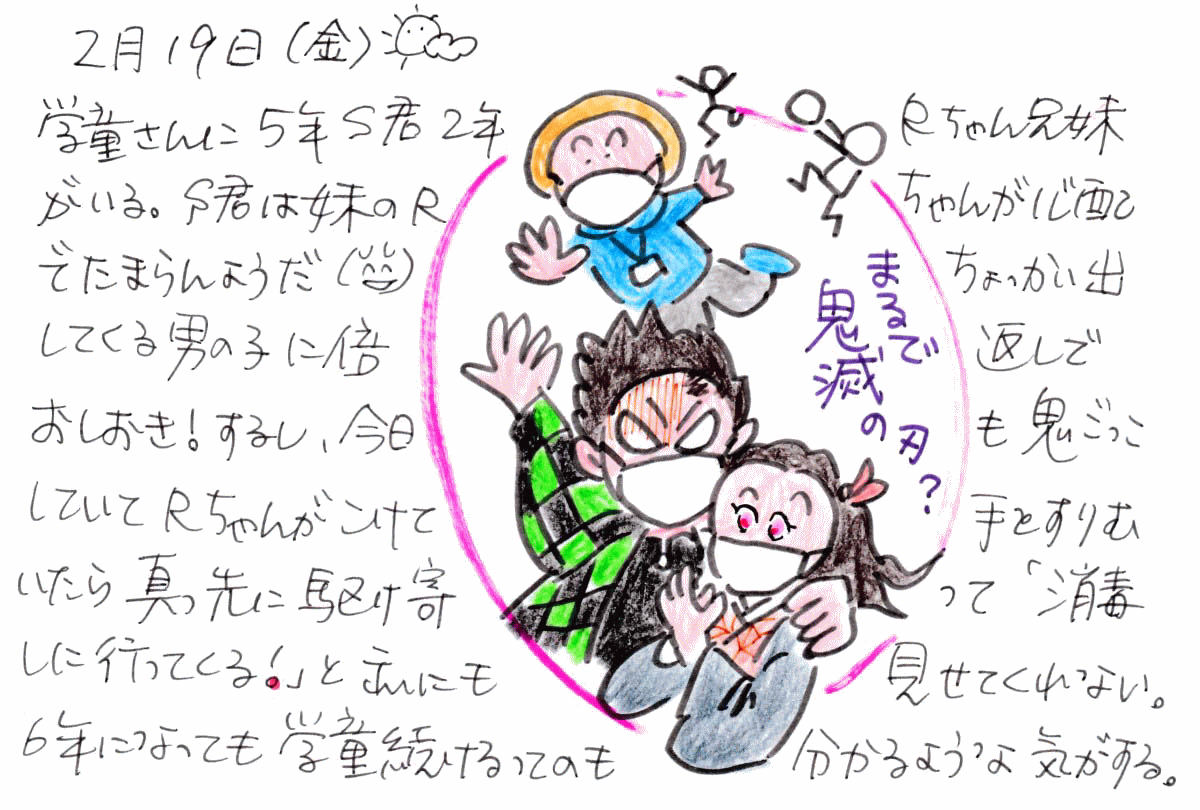 2月19日(金)
学童さんに5年S君2年 Rちゃん兄妹
がいる。S君は妹のR ちゃんが心配
でたまらんようだ ちょっかい出
してくる男の子に倍 返しで
おしおき!するし、今日 も鬼ごっこ
していてRちゃんがこけて 手とすりむ
いたら真っ先に駆け寄 って「消毒
しに行ってくる!」と あれにも 見せてくれない。
6年になっても学童続けるってのも 分かるような気がする。
まるで
鬼滅の刃?